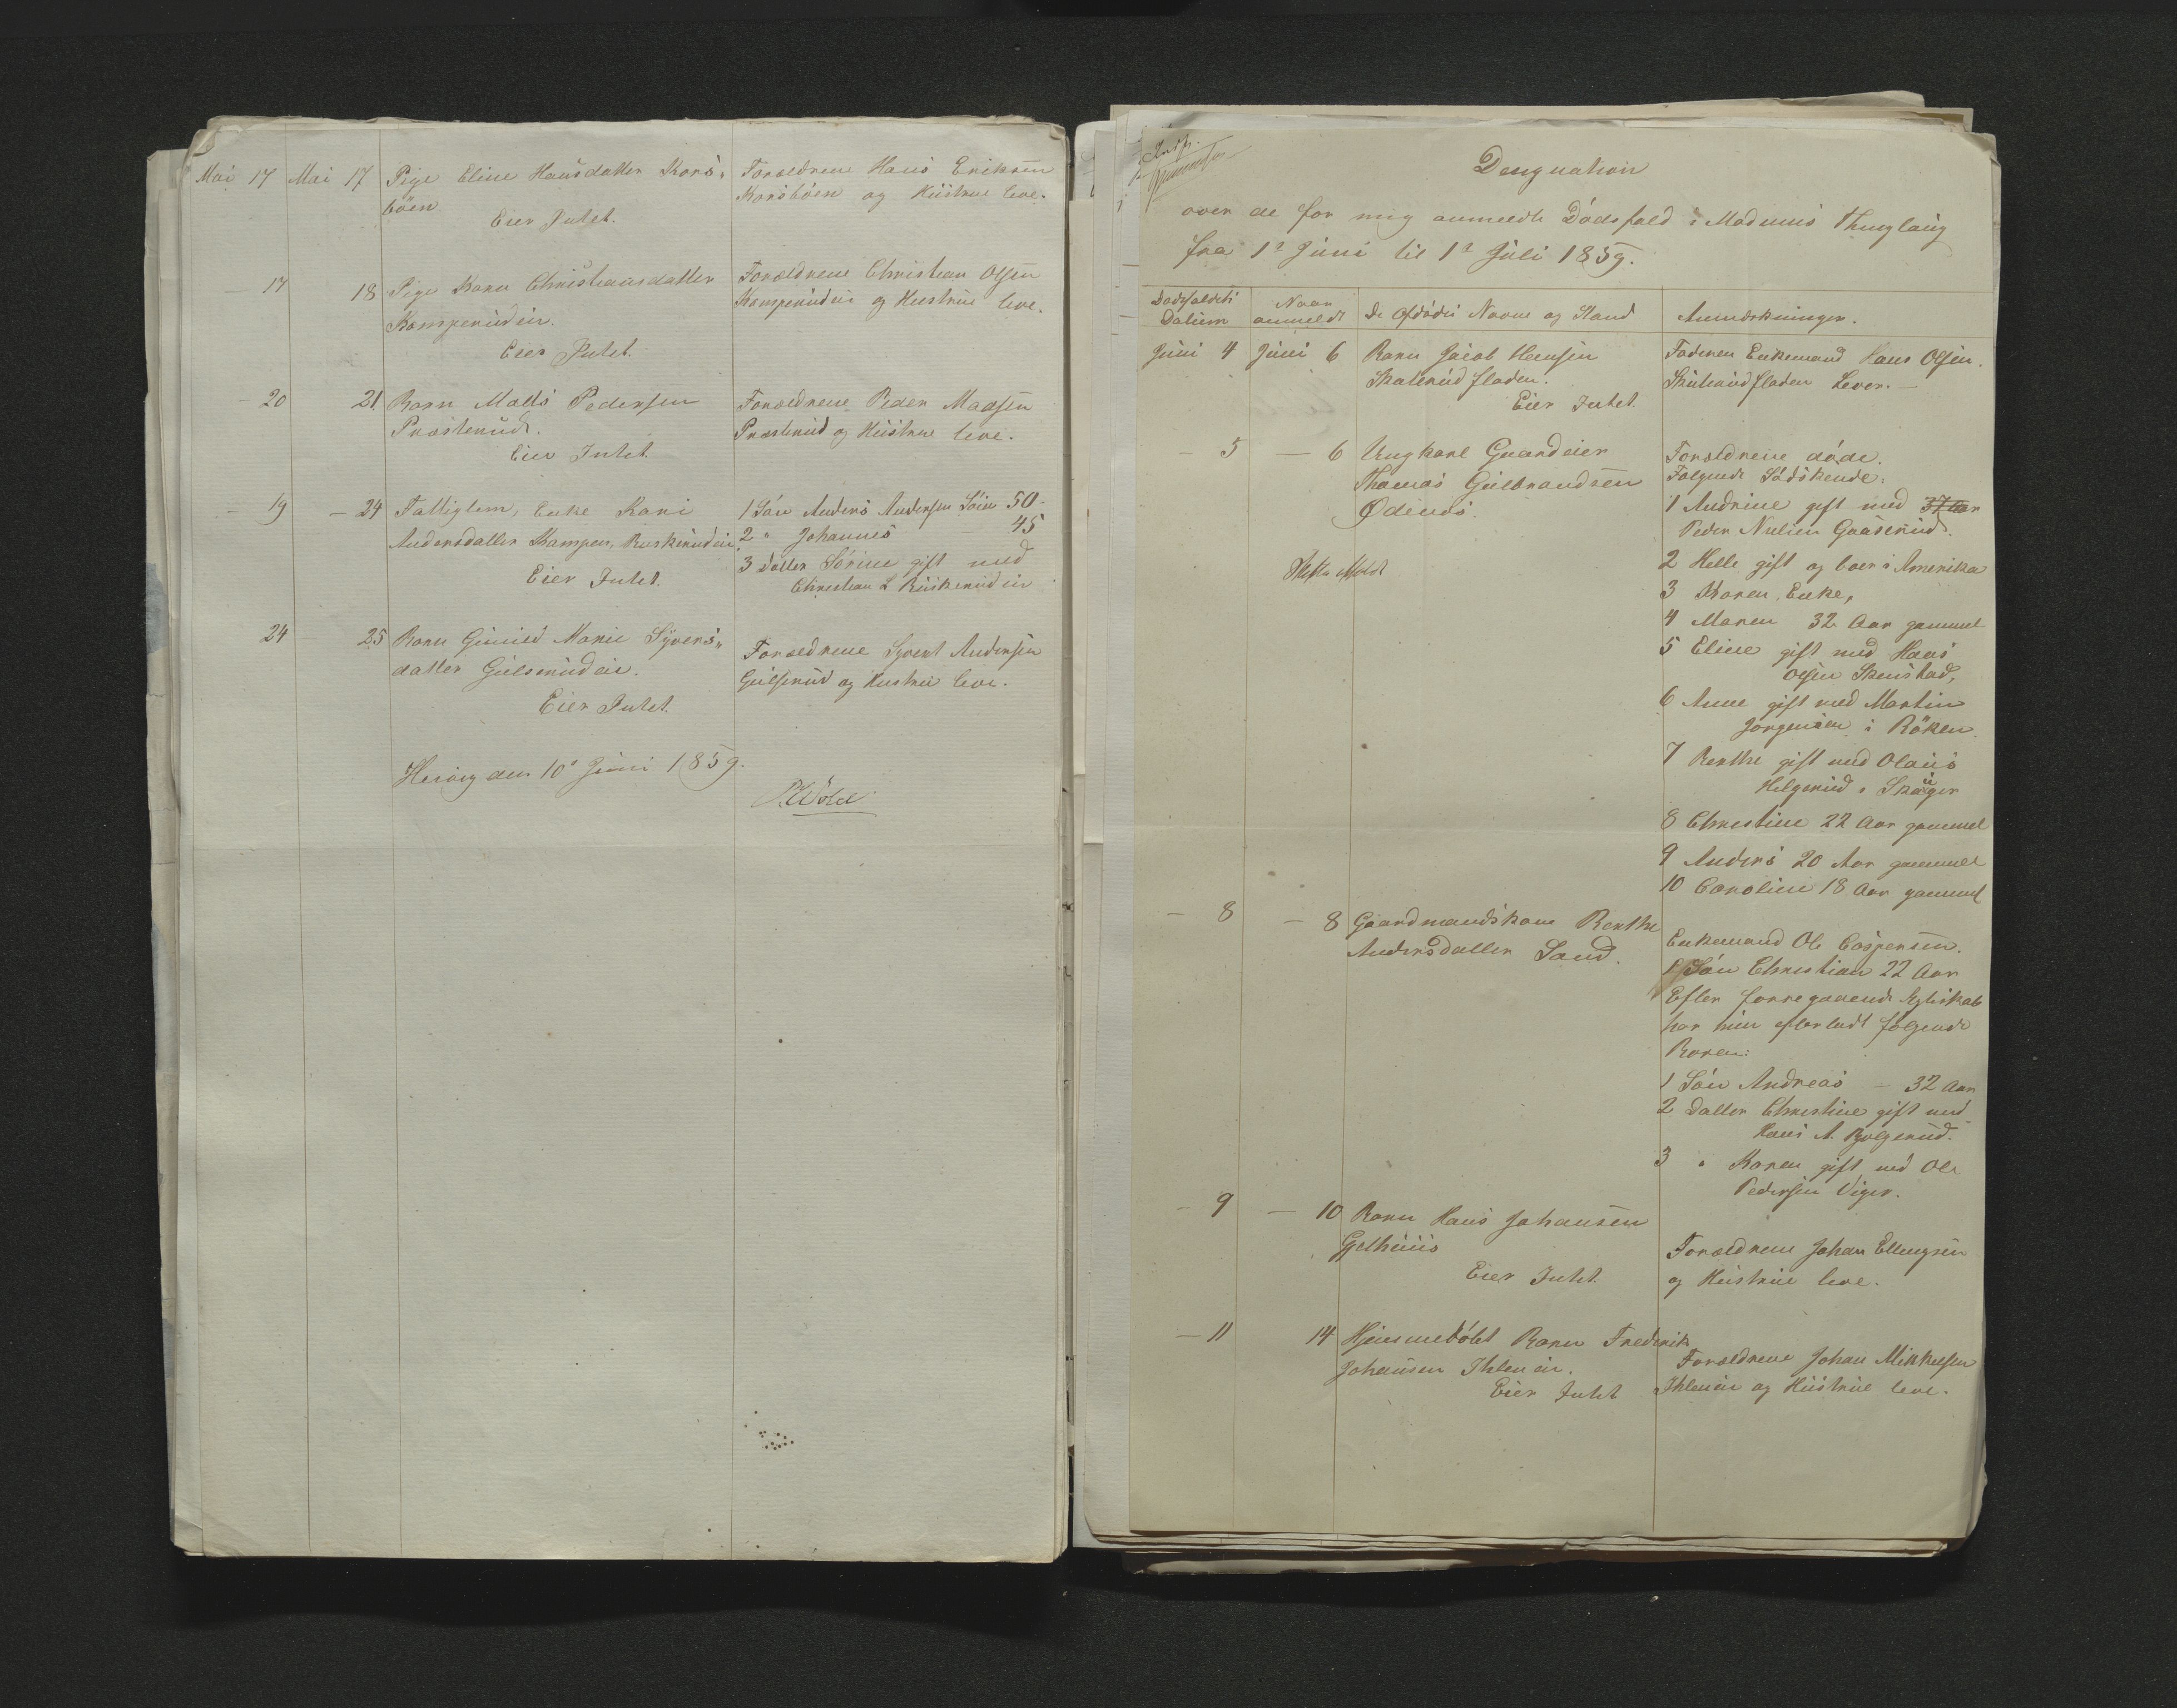 Mai 17 Mai 17 Pige Eline Hansdatter Kors„
böen.
Eier Intet.
Forældrene Hans Eriksen
Korsböen og Hustrue leve.
— 17 18 Pige Barn Christiansdatter
Komperudeie.
Eier Intet.
Forældrene Christian Olsen
Komperudeie og Hustrue leve.
— 20 21 Barn Matts Pedersen
Præsterud.
Eier Intet.
Forældrene Peder Madsen
Præsterud og Hustrue leve.
— 19 — 24 Fattiglem, Enke Kari
Andersdatter Kampen, Ruskerudeie.
Eier Intet.
1 Sön Anders Andersen Löin 50
2 " Johannes 45
3 Datter Sörine gift med
Christian L Ruskerudeie
24 — 25 Barn Gunild Marie Syvers„
datter Gulserudeie.
Eier Intet.
Forældrene Syvert Andersen
Gulserud og Hustrue leve.
Herög den 10' Juni 1859.
Designation
over de for mig anmeldte Dödsfald i Modums Thinglaug
fra 1ª Juni til 1ª Juli 1859.
Dödsfaldets
Datum
Naar
anmeldt
De Afdödes Navne og Stand
Anmærkninger.
Juni 4 Juni 6 Barn Jacob Hansen
Skaterudfladen.
Eier Intet.
Faderen Enkemand Hans Olsen.
Skuterudfladen Lever. —
— 5 — 6 Ungkarl Gaardeier
Thomas Gulbrandsen
Ødends.
Forældrene döde.
Fölgende Södskende:
1 Andrine gift med 37 Aar
Peder Nielsen Gaaserud.
2 Helle gift og boer i Amerika
3 Karen, Enke,
4 Maren 32 Aar gammel
5 Eline gift med Hans
Olsen Skinstad,
6 Anne gift med Martin
Jorgensen i Röken.
7 Berthe gift med Olaus
Helgerud i Skouger
8 Christine 22 Aar gammel
9 Anders 20 Aar gammel
10 Caroline 18 Aar gammel
— 8 — 8 Gaardmandskone Berthe
Andersdatter Sand.
Enkemand Ole Caspersen.
1 Sön Christian 22 Aar
Efter forregaaende Egteskab
har hun efterladt fölgende
Boren:
1 Sön Andreas — 32 Aar
2 Datter Christine gift med
Hans A. Bolgerud.
3 " Karen gift med Ole
Pedersen Viger.
— 9 — 10 Barn Hans Johansen
Gjethuus
Eier Intet.
Forældrene Johan Ellingsen
og Hustrue leve.
— 11 14 Hjemmedöbt Barn Frederik
Johansen Ihleneie.
Eier Intet
Forældrene Johan Mikkelsen
Ihleneie og Hustrue leve.